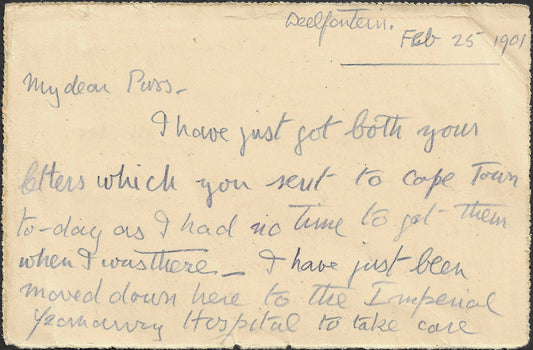 Deelfontein.
Feb 25 1901
My dear Puss -
I have just got both your
letters which you sent to Cape Town
to-day as I had no time to get them
when I was there - I have just been
moved down here to the Imperial
Yeomanry Hospital to take care